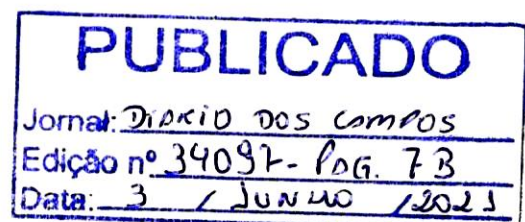 PUBLICADO
Jornal: DIARIO DOS CAMPOS
Edição nº 34097- PAG. 7B
Data: 3 / JUNHO /2021